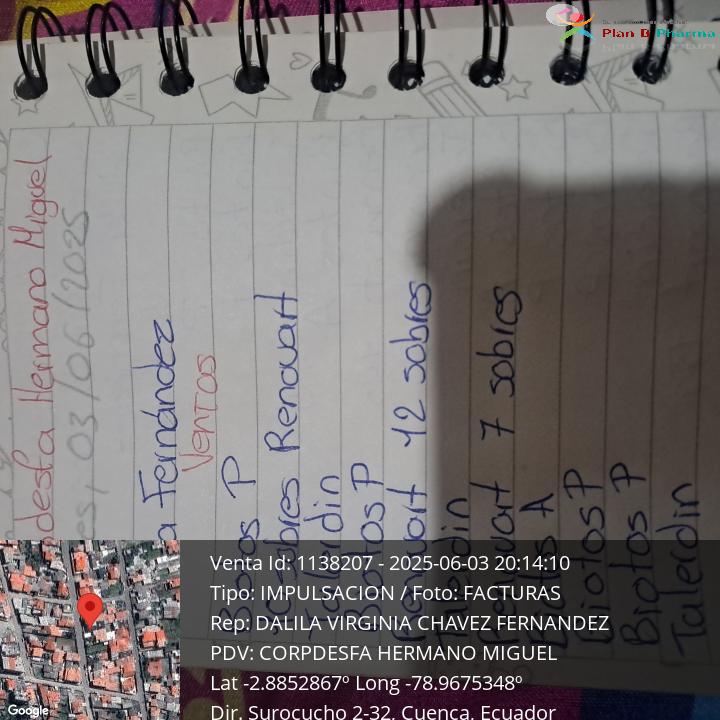 Plan B Pharma
desfa Hermano Miguel
es, 03/06/2025
a Fernández
Ventas
P
Sobres Renovart
Talerdin
Biotos P
Renovart 12 sobres
Renovart 7 sobres
A
Biotos P
Biotos P
Talerdin
Venta Id: 1138207 - 2025-06-03 20:14:10
Tipo: IMPULSACION / Foto: FACTURAS
Rep: DALILA VIRGINIA CHAVEZ FERNANDEZ
PDV: CORPDESFA HERMANO MIGUEL
Lat -2.8852867º Long -78.9675348º
Dir. Surocucho 2-32, Cuenca, Ecuador
Google